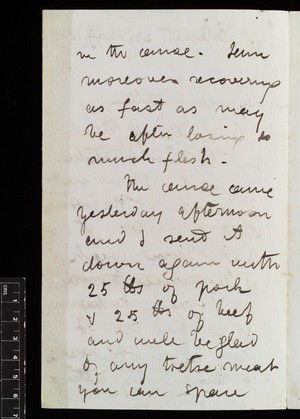 in the canoe. Semi
moreover recovering
as fast as may
be after losing so
much flesh -
The canoe came
yesterday afternoon
and I sent it
down again with
25 lbs of pork
& 25 lbs of beef
and will be glad
of any fresh meat
you can spare